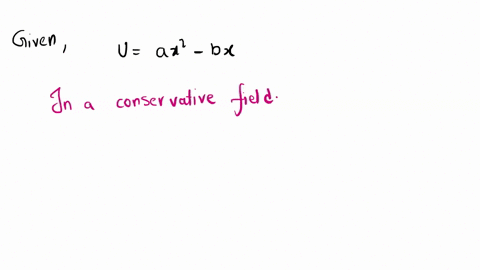 Given, U = ax² - bx
In a conservative field.